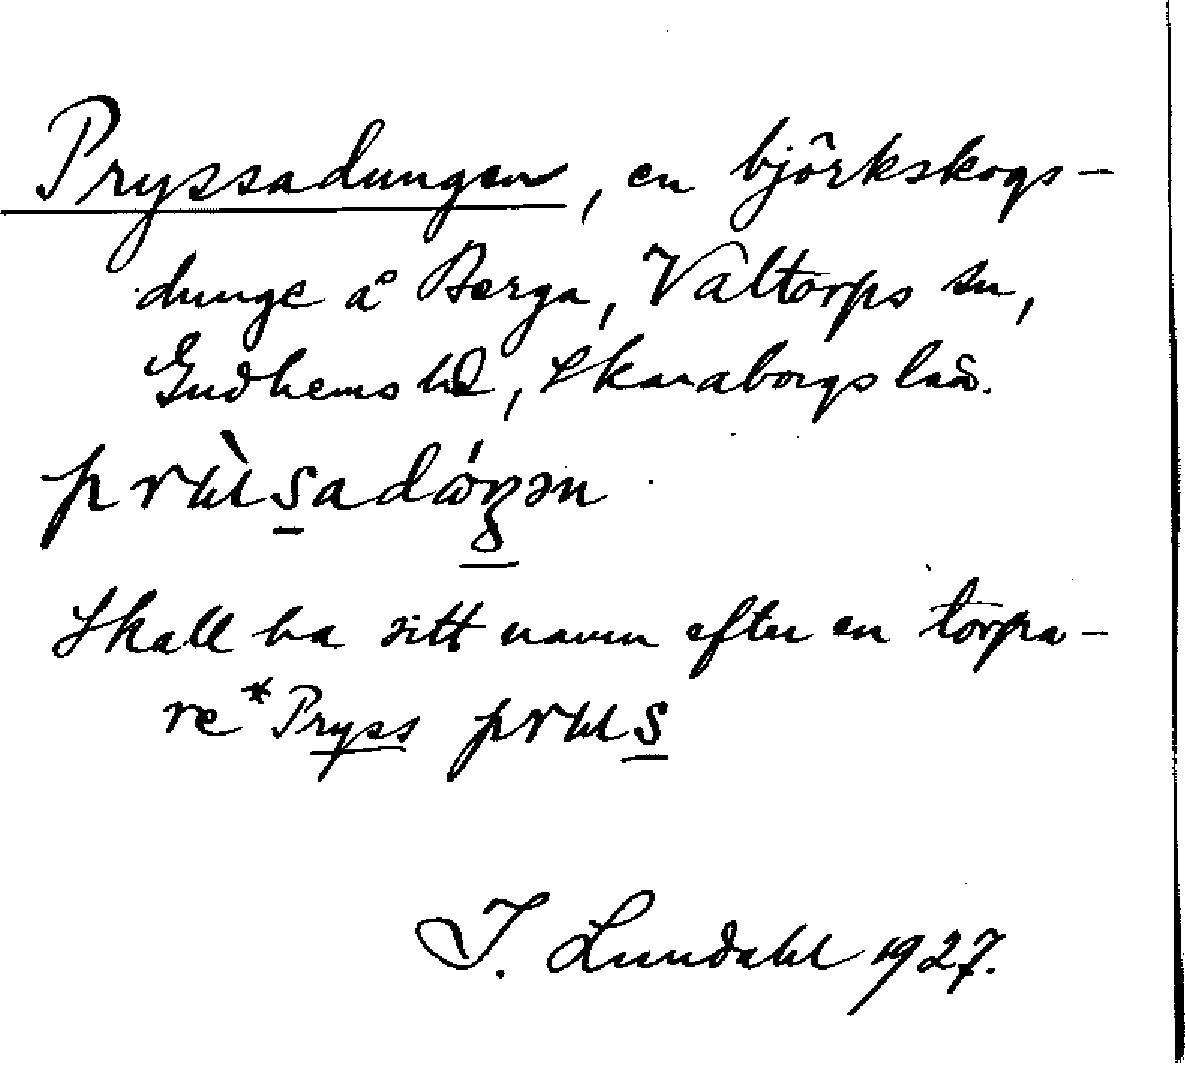 Pryssadungen, en björkskogs-
dunge å Berga, Valtorps sn,
Gudhems hd, Skaraborgs län.
prɯ̀sadóŋən.
Skall ha sitt namn efter en torpa-
re *Pryss prɯs
I. Lundahl 1927.